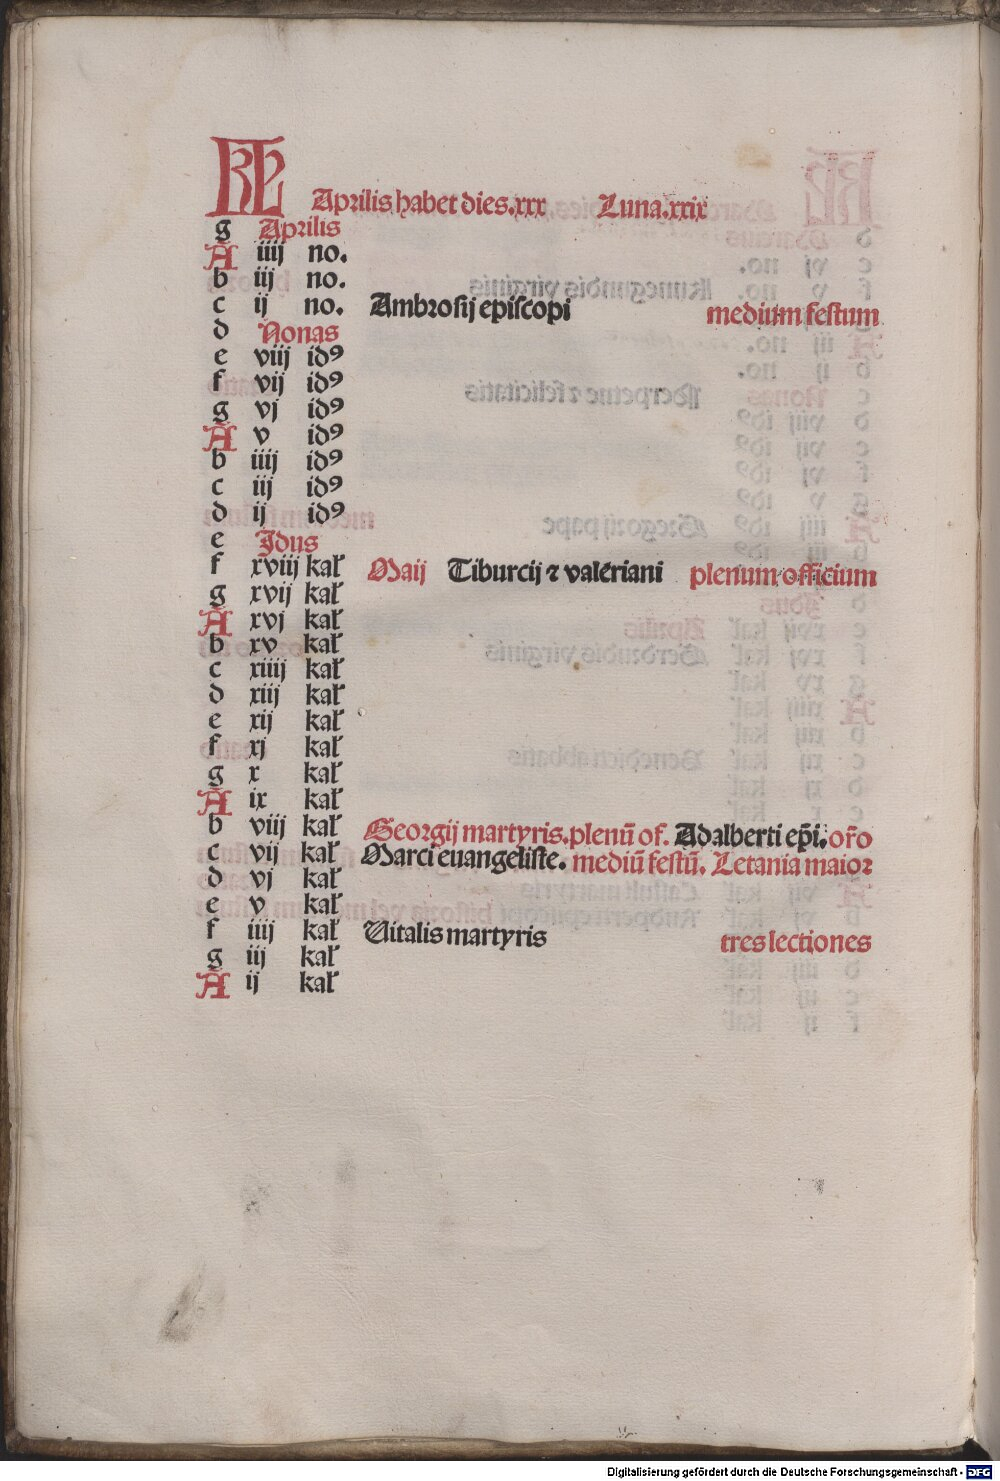 KL Aprilis habet dies.xxx Luna.xxix
g Aprilis
A iiij no.
b iij no.
c ij no. Ambrosij episcopi medium festum
d Nonas
e viij idꝰ
f vij idꝰ
g vj idꝰ
A v idꝰ
b iiij idꝰ
c iij idꝰ
d ij idꝰ
e Jdus
f xviij kał Maij Tiburcij ⁊ valeriani plenum officium
g xvij kał
A xvj kał
b xv kał
c xiiij kał
d xiij kał
e xij kał
f xj kał
g x kał
A ix kał
b viij kał Georgij martyris.plenū of. Adalberti ep̄i. or̄o
c vij kał Marci euangeliste. mediū festū. Letania maior
d vj kał
e v kał
f iiij kał Uitalis martyris tres lectiones
g iij kał
A ij kał
Digitalisierung gefördert durch die Deutsche Forschungsgemeinschaft - DFG